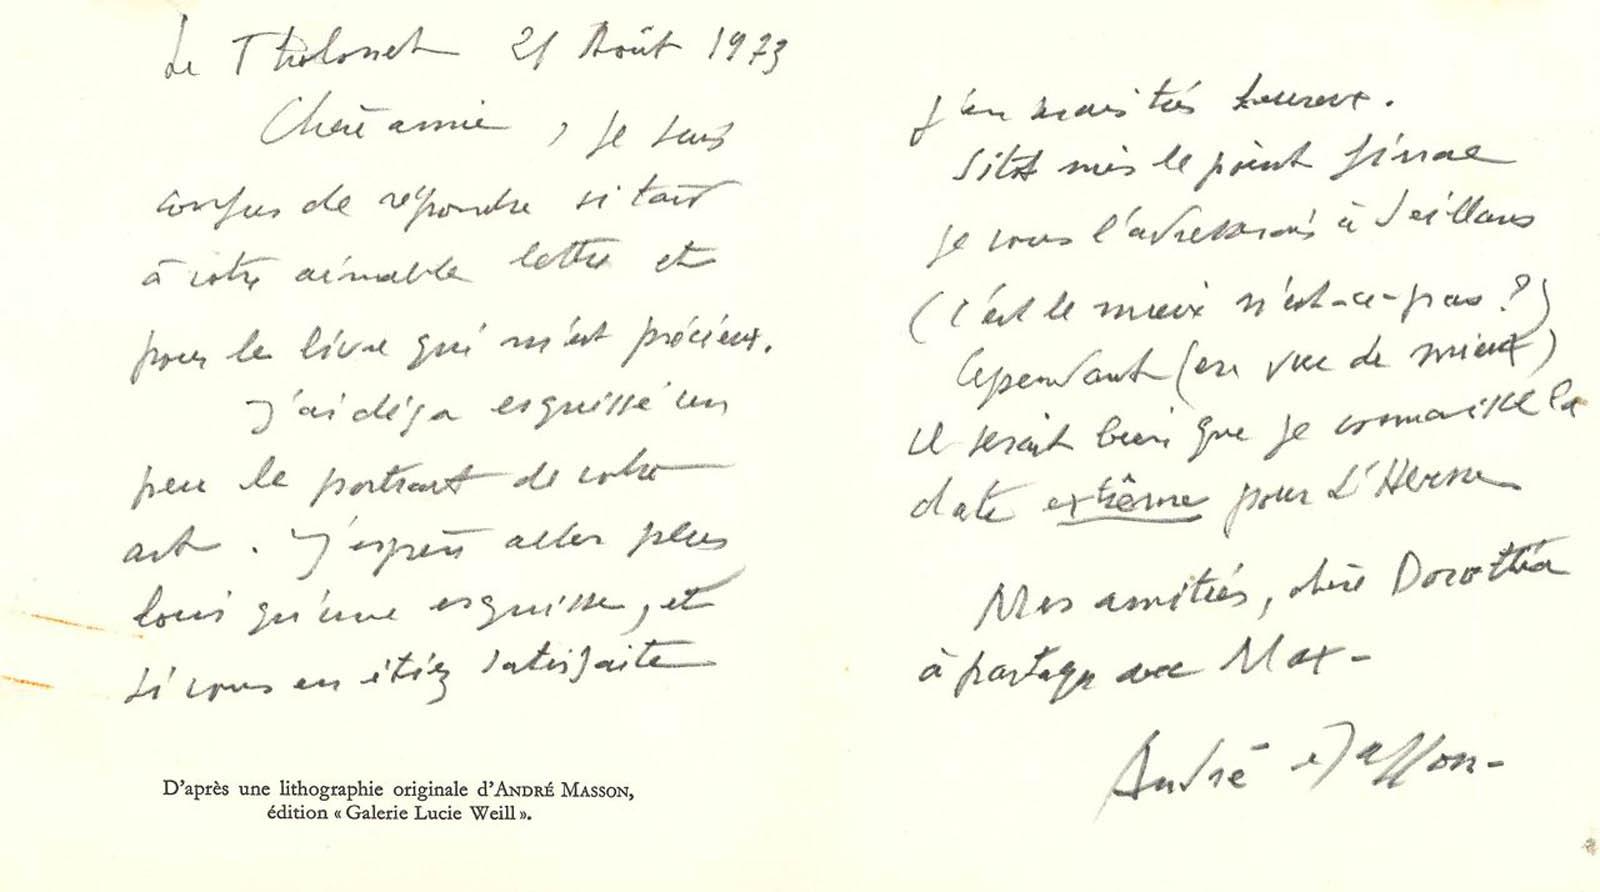 Le Tholonet 21 Août 1973
Chère amie, je suis
confus de répondre si tard
à votre aimable lettre et
pour le livre qui m'est précieux.
J'ai déja esquissé un
peu le portrait de votre
art. J'espère aller plus
loin qu'une esquisse, et
si vous en étiez satisfaite
j'en serais très heureux.
Sitôt mis le point final
je vous l'adresserais à Seillans
(C'est le mieux n'est-ce-pas ?)
Cependant (en vue de mieux)
il serait bien que je connaisse la
date extrême pour L'Herne
Mes amitiés, chère Dorothéa
à partager avec Max -
André Masson -
D'après une lithographie originale d'ANDRÉ MASSON,
édition « Galerie Lucie Weill ».